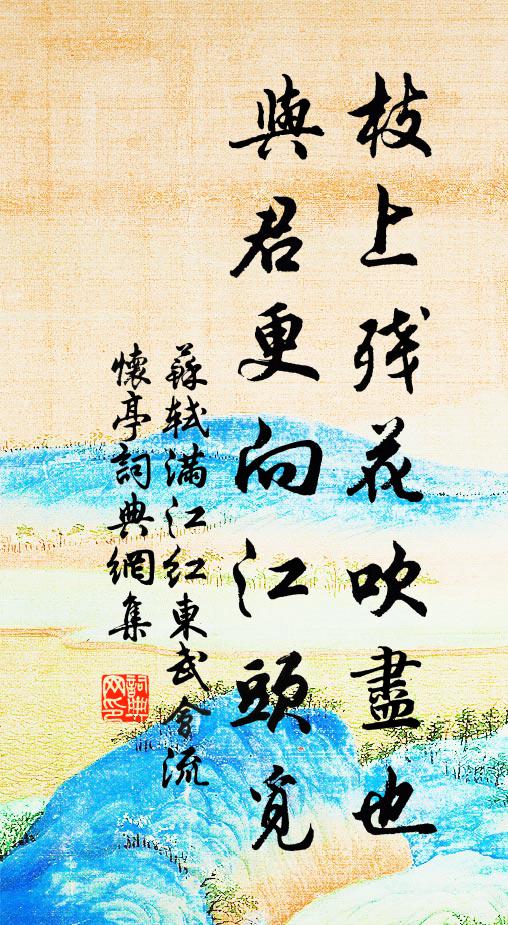 枝上残花吹盡也
與君更向江頭覓
蘇軾滿江红東武會流
懷亭詞典網集
詞典网印